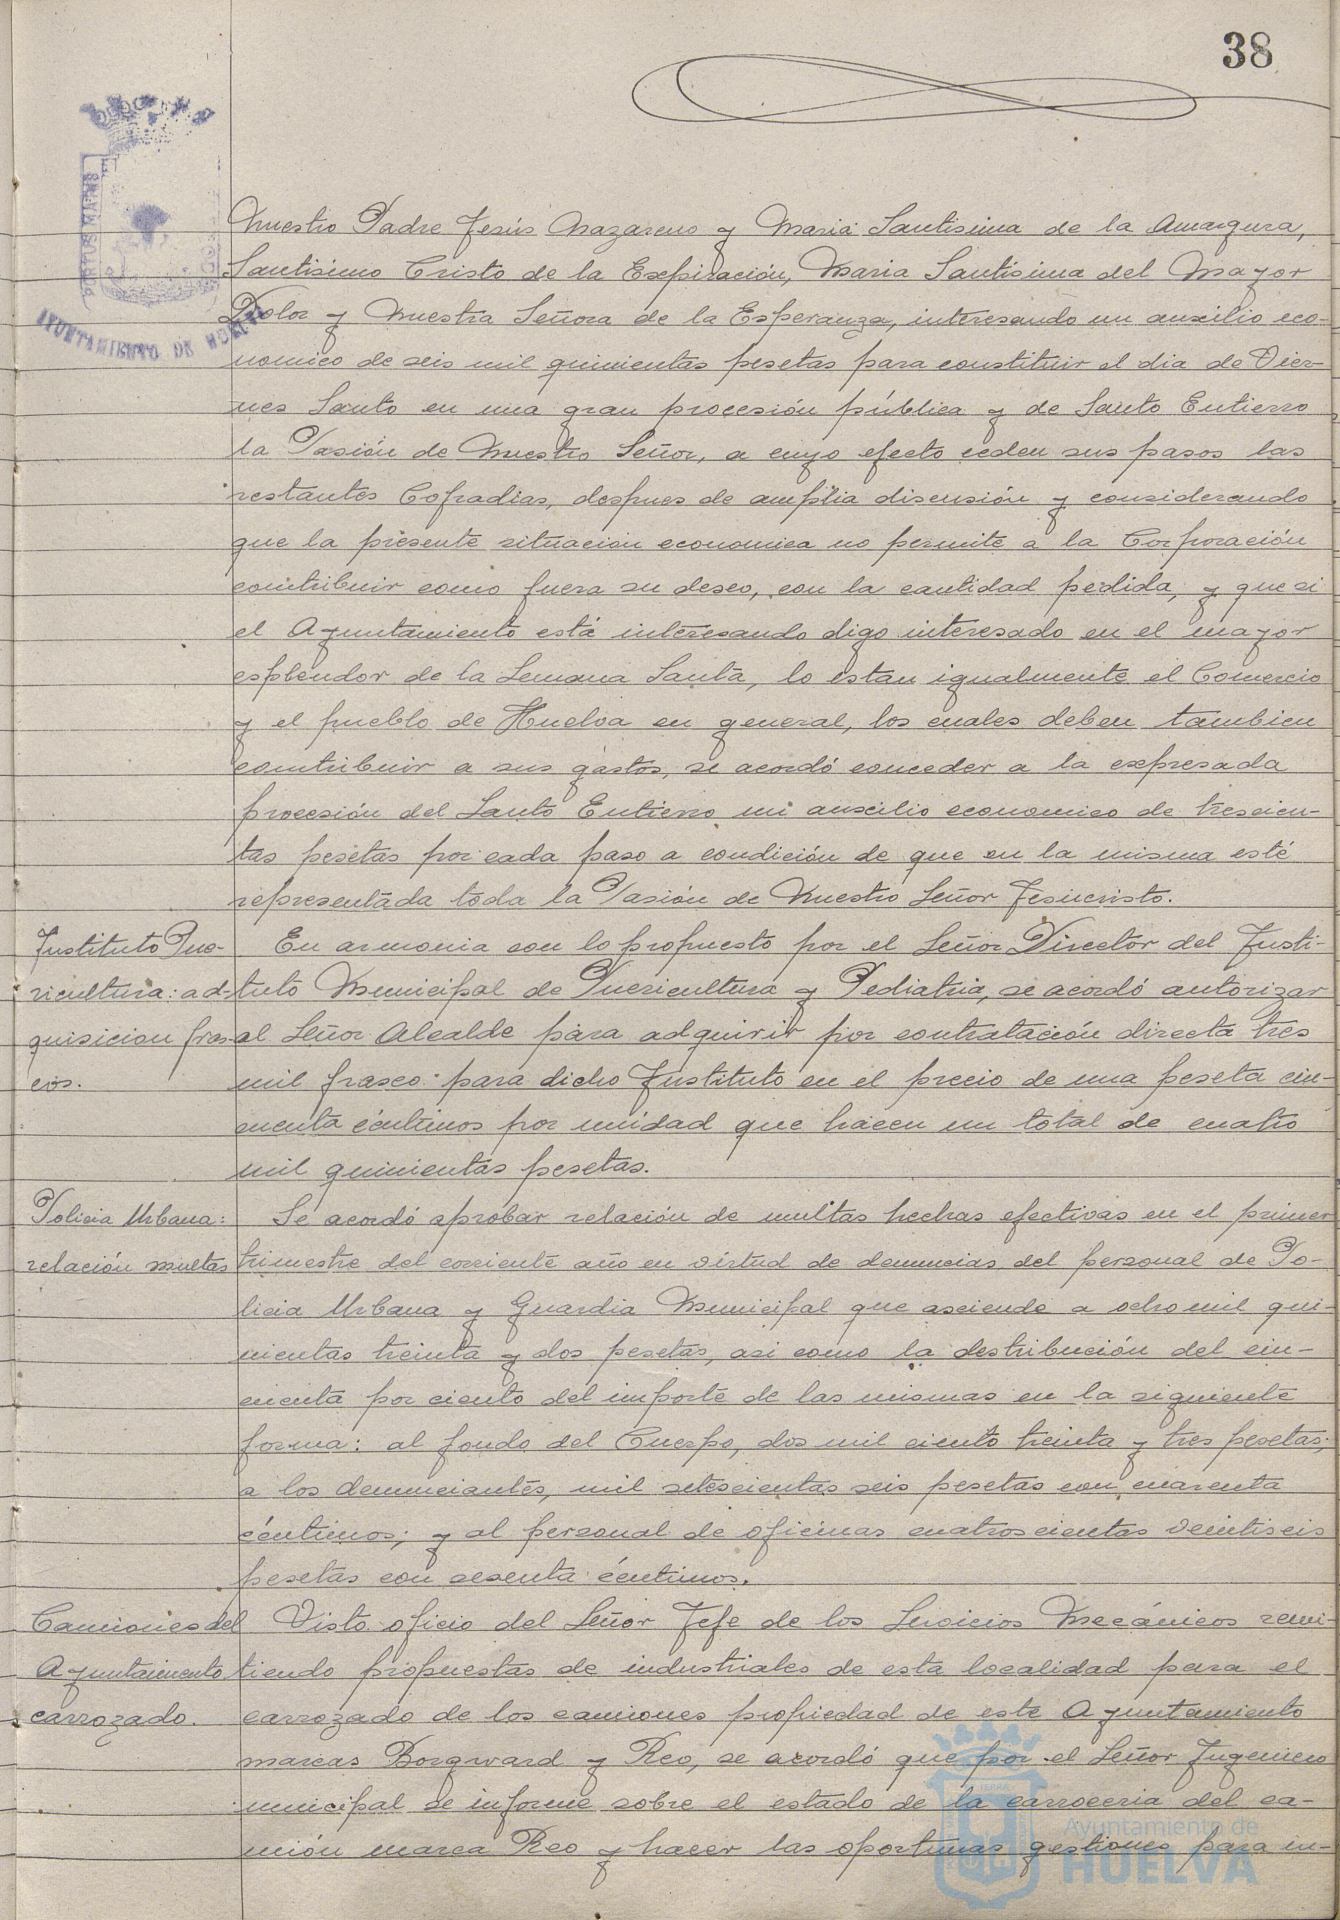 38
PORTUS MARIS
AYUNTAMIENTO DE HUELVA
Nuestro Padre Jesús Nazareno y Maria Santisima de la Amargura,
Santisimo Cristo de la Expiración, Maria Santisima del Mayor
Dolor y Nuestra Señora de la Esperanza, interesando un auxilio eco-
nomico de seis mil quinientas pesetas para constituir el dia de Vier-
nes Santo en una gran procesión pública y de Santo Entierro
la Pasión de Nuestro Señor, a cuyo efecto ceden sus pasos las
restantes Cofradias, despues de amplia discusión y considerando
que la presente situación economica no permite a la Corporación
contribuir como fuera su deseo, con la cantidad pedida, y que si
el Ayuntamiento está interesando digo interesado en el mayor
esplendor de la Semana Santa, lo estan igualmente el Comercio
y el pueblo de Huelva en general, los cuales deben tambien
contribuir a sus gastos, se acordó conceder a la expresada
procesión del Santo Entierro un auxilio economico de trescien-
tas pesetas por cada paso a condición de que en la misma esté
representada toda la Pasión de Nuestro Señor Jesucristo.
Instituto Pue-
ricultura: ad-
quisicion fras-
cos.
En armonia con lo propuesto por el Señor Director del Insti-
tuto Municipal de Puericultura y Pediatria, se acordó autorizar
al Señor Alcalde para adquirir por contratación directa tres
mil frasco para dicho Instituto en el precio de una peseta cin-
cuenta céntimos por unidad que hacen un total de cuatro
mil quinientas pesetas.
Policia Urbana:
relación multas
Se acordó aprobar relación de multas hechas efectivas en el primer
trimestre del corriente año en virtud de denuncias del personal de Po-
licia Urbana y Guardia Municipal que asciende a ocho mil qui-
nientas treinta y dos pesetas, asi como la destribución del cin-
cuenta por ciento del importe de las mismas en la siguiente
forma: al fondo del Cuerpo, dos mil ciento treinta y tres pesetas;
a los denunciantes, mil setescientas seis pesetas con cuarenta
céntimos; y al personal de oficinas cuatroscientas veintiseis
pesetas con sesenta céntimos.
Camiones del
Ayuntamiento
carrozado.
Visto oficio del Señor Jefe de los Servicios Mecánicos remi-
tiendo propuestas de industriales de esta localidad para el
carrozado de los camiones propiedad de este Ayuntamiento
marcas Borgward y Reo, se acordó que por el Señor Ingeniero
municipal se informe sobre el estado de la carroceria del ca-
mión marca Reo y hacer las oportunas gestiones para in-
Ayuntamiento de
HUELVA